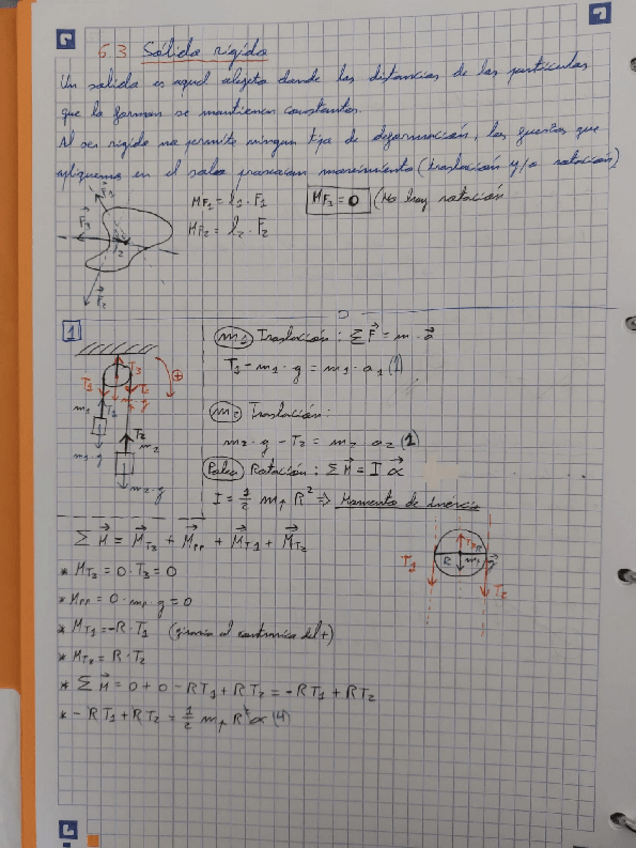 6.3 Sólido rígido
Un sólido es aquel objeto donde las distancias de las partículas
que lo forman se mantienen constantes.
Al ser rígido no permite ningún tipo de deformación, las fuerzas que
apliquemos en el sólo provocan movimiento (traslación y/o rotación)
F₁ M_F₁ = l₁ · F₁ M_F₃ = 0 (No hay rotación
F₃ M_F₂ = l₂ · F₂
l₂
F₂
1 m₁ Traslación: Σ F = m · a
T₃
T₁ + T₁ - m₁ · g = m₁ · a₁ (1)
m₁ T₁
m₂ Traslación:
T₂
m₂ m₂ · g - T₂ = m₂ a₂ (1)
m₁·g
Polea Rotación: Σ M = I α
m₂·g
I = 1/2 m_p R² ⇒ Momento de inercia
Σ M = M_T₃ + M_pp + M_T₁ + M_T₂
* M_T₃ = 0 · T₃ = 0 T₁ R T₂
* M_pp = 0 · m_p · g = 0
* M_T₁ = -R · T₁ (giraría al contrario del +)
* M_T₂ = R · T₂
* Σ M = 0 + 0 - RT₁ + RT₂ = -RT₁ + RT₂
* - RT₁ + RT₂ = 1/2 m_p R² α (4)